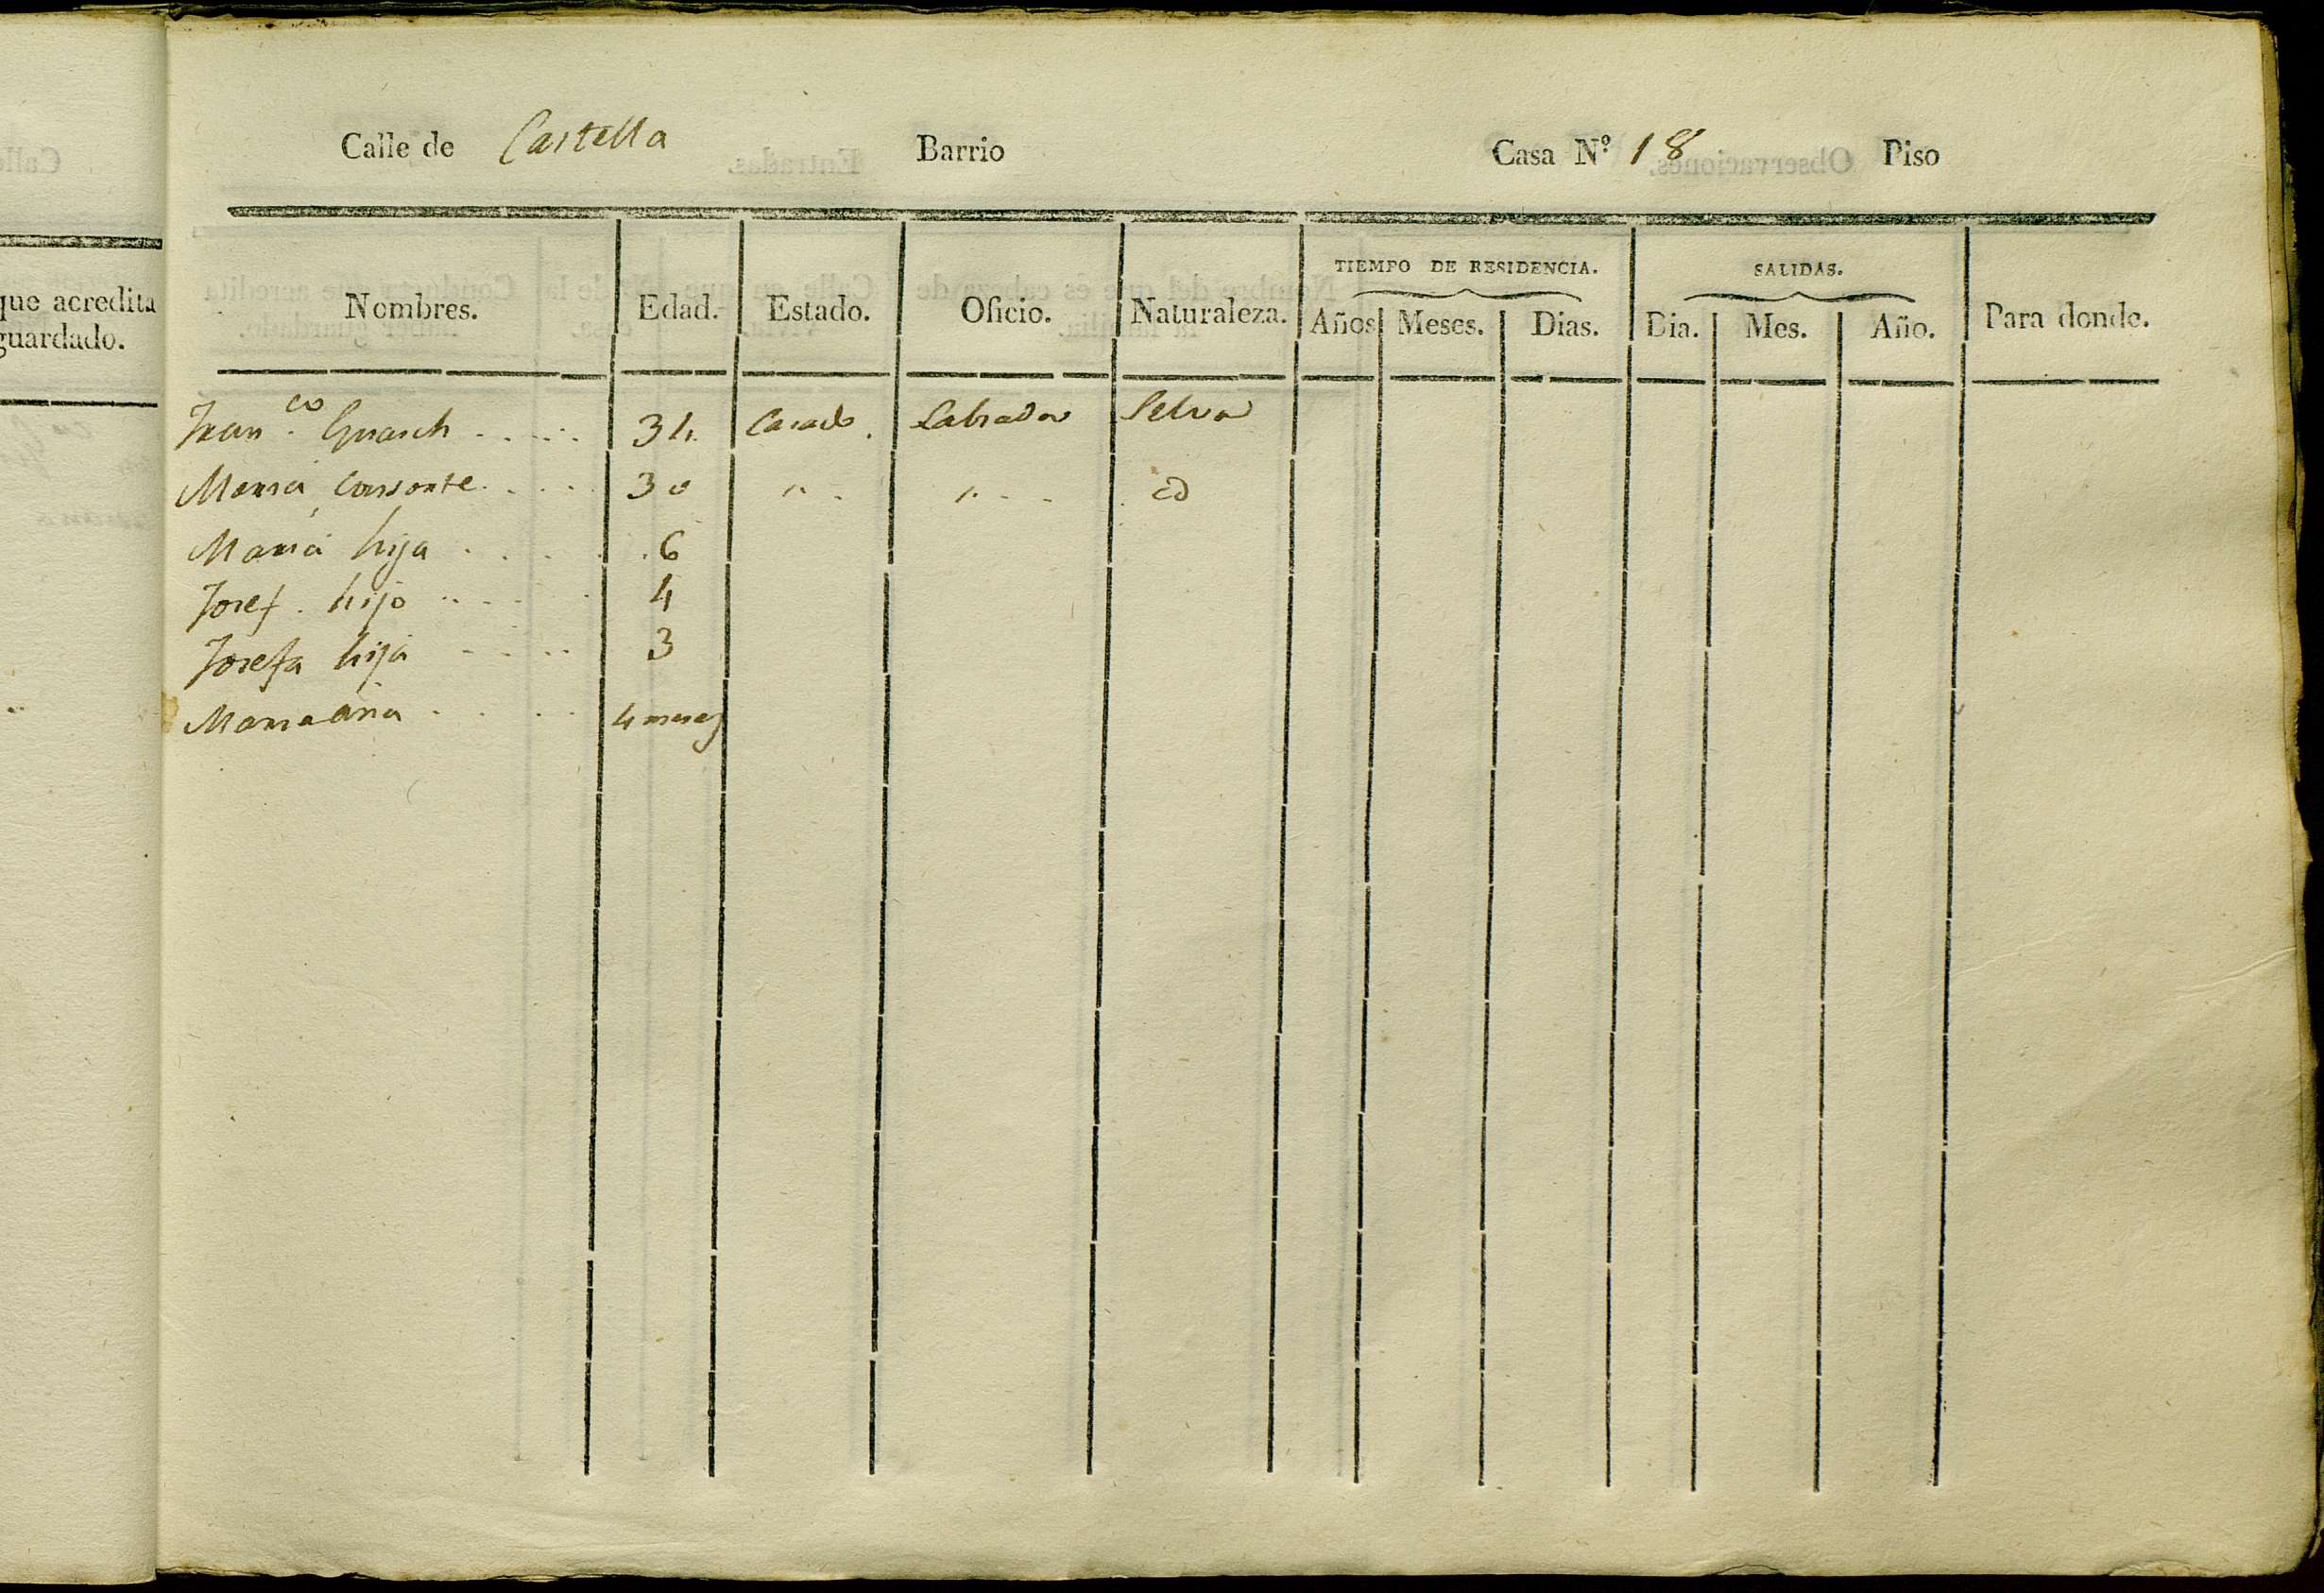 que acredita
guardado.
Calle de Castella Barrio Casa Nº 18 Piso
TIEMPO DE RESIDENCIA. SALIDAS.
Nombres. Edad. Estado. Oficio. Naturaleza. Años Meses. Dias. Dia. Mes. Año. Para donde.
Franco. Guasch 34 Casado. Labrador Selva
Maria consorte 30 " " id
Maria hija 6
Josef. hijo 4
Josefa hija 3
Maria ana 4 meses